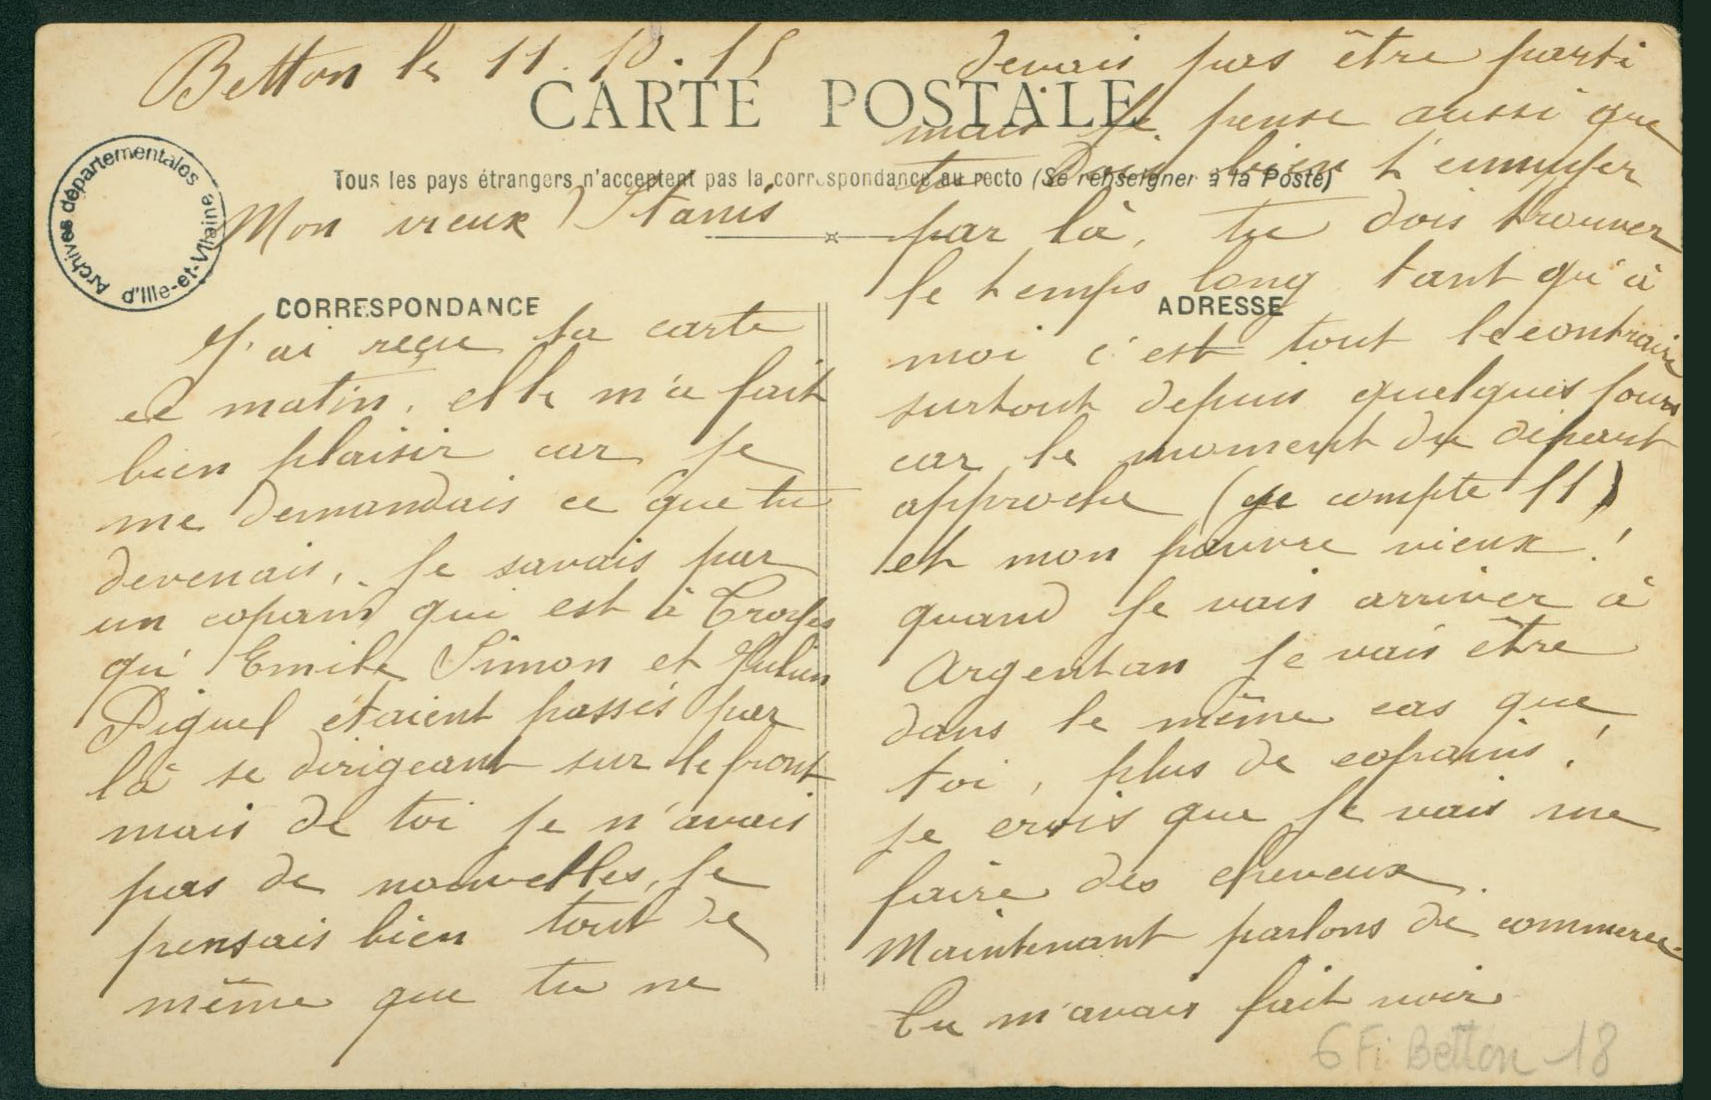 Betton le 11.10.15
CARTE POSTALE
Tous les pays étrangers n'acceptent pas la correspondance au recto (Se renseigner à la Poste)
Archives départementales d'Ille-et-Vilaine
Mon vieux Stanis
CORRESPONDANCE
J'ai reçu ta carte
ce matin, elle m'a fait
bien plaisir car je
me demandais ce que tu
devenais, je savais par
un copain qui est à Troyes
qu'Emile Simon et Julien
Piguel étaient passés par
là se dirigeant sur le front
mais de toi je n'avais
pas de nouvelles, je
pensais bien tout de
même que tu ne
devais pas être parti
mais je pense aussi que
tu dois bien t'ennuyer
par là, tu dois trouver
le temps long tant qu'à
ADRESSE
moi c'est tout le contraire
surtout depuis quelques jours
car le moment du départ
approche (je compte 11)
et mon pauvre vieux !
quand je vais arriver à
Argentan je vais être
dans le même cas que
toi, plus de copains !
je crois que je vais me
faire des cheveux.
Maintenant parlons de commerce.
Tu m'avais fait voir
6 Fi Betton 18